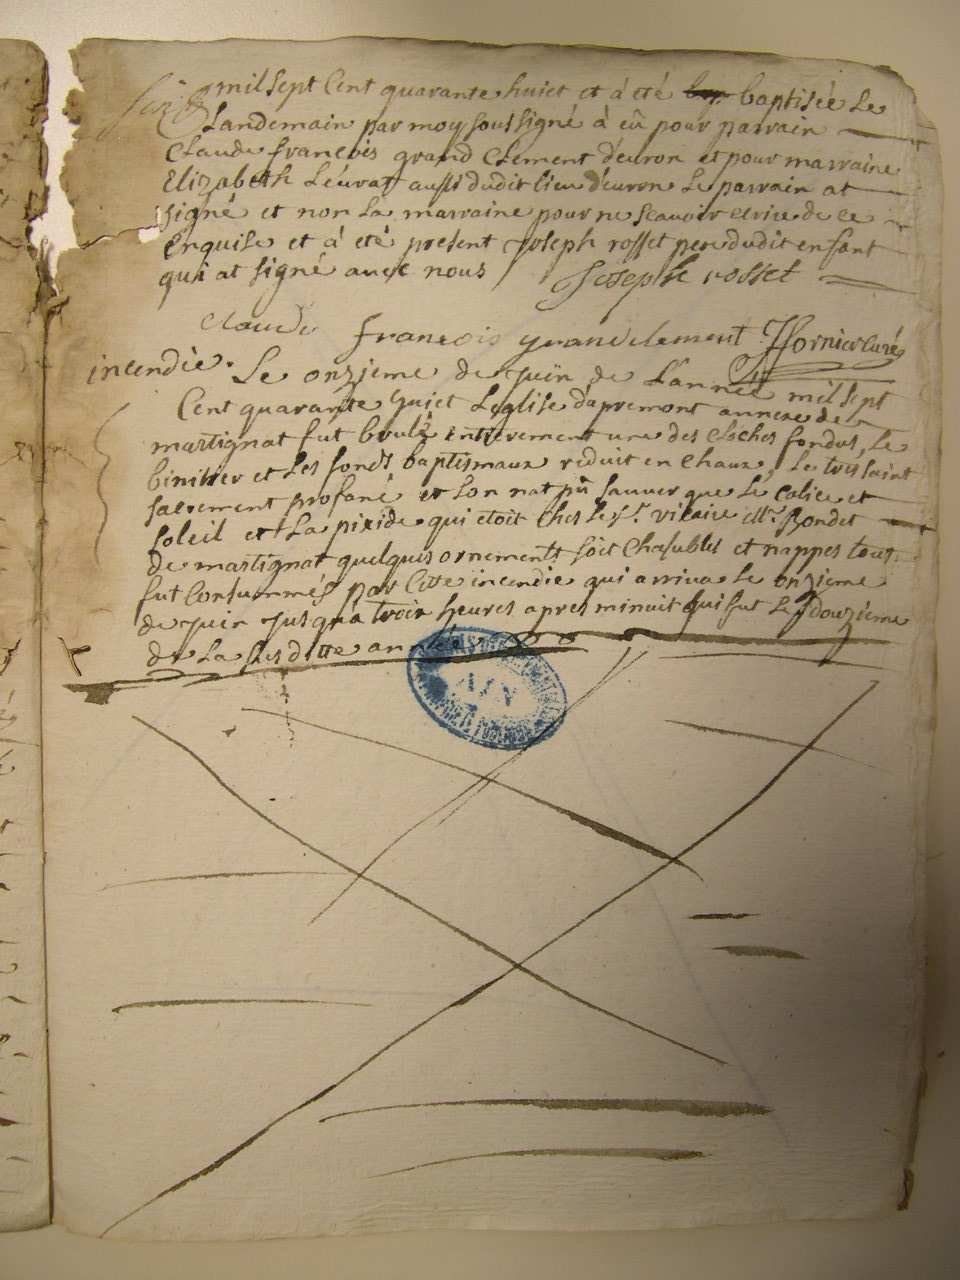 mil sept Cent quarante huict et à été baptisée Le
Landemain par moy soussigné à eü pour parrain
Claude francois grand Clement d'euron et pour marraine
Elizabeth Leurat aussi dudit lieu d'euron Le parrain at
signé et non La marraine pour ne scauoir ecrire de ce
Enquise et à eté present joseph rosset pere dudit enfant
qui at signé auec nous Joseph rosset
Claude francois grandclement fornier Curé
incendie. Le onzieme de juin de L'année mil sept
Cent quarante huict L'eglise d'apremont annexe de
martignat fut brulé entierement une des cloches fondus, Le
binitier et Les fonds baptismaux reduit en chaux, Le tres saint
sacrement profané et Lon nat pû sauuer que Le Calice et
soleil et La pixide qui etoit Ches Le Sr. vicaire Mr. Bondet
de martignat quelques ornements soit Chasubles et nappes tout
fut Consummés par Cette incendie qui arriva Le onzieme
de juin jusqu'a trois heures apres minuit qui fut Le douzieme
de La susditte année
AIN